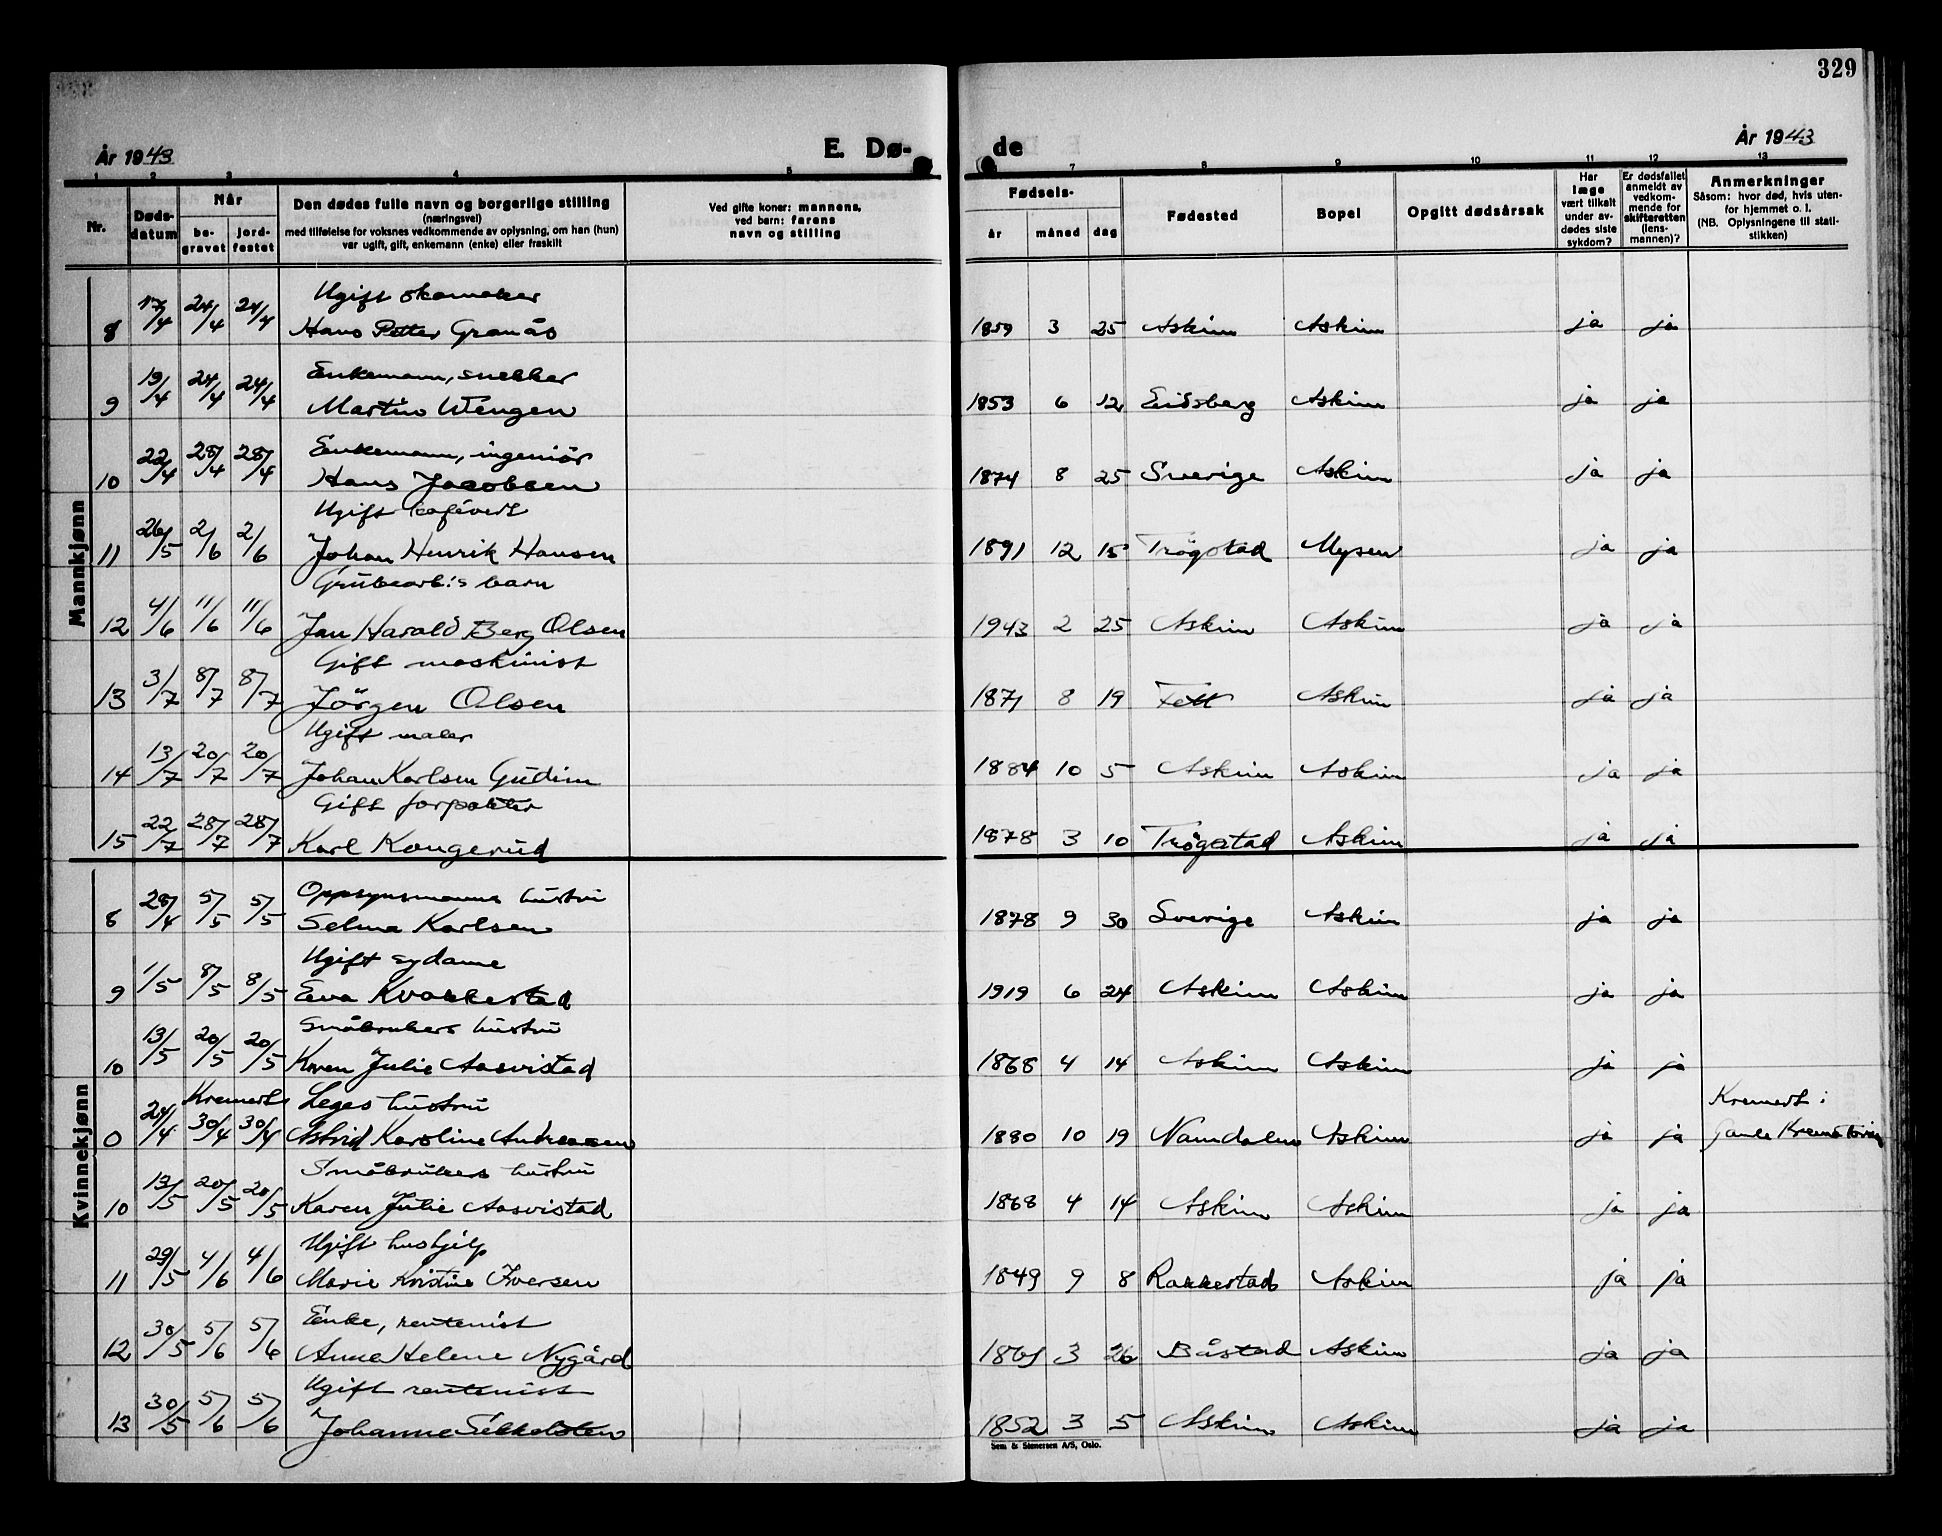 329
År 1943
E. Dø-
de
År 1943
1 2 3 4 5 7 8 9 10 11 12 13
Nr.
Døds-
datum
Når
be-
gravet
jord-
festet
Den dødes fulle navn og borgerlige stilling
(næringsvei)
med tilføielse for voksnes vedkommende av oplysning, om han (hun)
var ugift, gift, enkemann (enke) eller fraskilt
Ved gifte koner: mannens,
ved barn: farens
navn og stilling
Fødsels-
år måned dag
Fødested
Bopel
Opgitt dødsårsak
Har
læge
vært tilkalt
under av-
dødes siste
sykdom?
Er dødsfallet
anmeldt av
vedkom-
mende for
skifteretten
(lens-
mannen)?
Anmerkninger
Såsom: hvor død, hvis uten-
for hjemmet o. l.
(NB. Oplysningene til stati-
stikken)
Mannkjønn
Ugift skomaker
8 17/4 24/4 24/4 Hans Petter Granås 1859 3 25 Askim Askim ja ja
Enkemann, snekker
9 19/4 24/4 24/4 Martin Wengen 1853 6 12 Eidsberg Askim ja ja
Enkemann, ingeniör
10 22/4 28/4 28/4 Hans Jacobsen 1874 8 25 Sverige Askim ja ja
Ugift cafévert
11 26/5 2/6 2/6 Johan Henrik Hansen 1891 12 15 Trøgstad Mysen ja ja
Grubearb:s barn
12 4/6 11/6 11/6 Jan Harald Berg Olsen 1943 2 25 Askim Askim ja ja
Gift maskinist
13 3/7 8/7 8/7 Jörgen Olsen 1871 8 19 Fett Askim ja ja
Ugift maler
14 13/7 20/7 20/7 Johan Karlsen Gudim 1884 10 5 Askim Askim ja ja
Gift forpakter
15 22/7 28/7 28/7 Karl Kongerud 1878 3 10 Trøgstad Askim ja ja
Kvinnekjønn
Oppsynsmanns hustru
8 28/4 5/5 5/5 Selma Karlsen 1878 9 30 Sverige Askim ja ja
Ugift sydame
9 1/5 8/5 8/5 Eva Kvakkestad 1919 6 24 Askim Askim ja ja
Småbrukers hustru
10 13/5 20/5 20/5 Karen Julie Aasvistad 1868 4 14 Askim Askim ja ja
Kremert Leges hustru Kremert i
0 24/4 30/4 30/4 Astrid Karoline Andreassen 1880 10 19 Namdalen Askim ja ja Gamle Krematorium
Småbrukers hustru
10 13/5 20/5 20/5 Karen Julie Aasvistad 1868 4 14 Askim Askim ja ja
Ugift hushjelp
11 29/5 4/6 4/6 Marie Kristine Iversen 1849 9 8 Rakkestad Askim ja ja
Enke, rentenist
12 30/5 5/6 5/6 Anne Helene Nygård 1861 3 26 Båstad Askim ja ja
Ugift rentenist
13 30/5 5/6 5/6 Johanne Sekkelsten 1852 3 5 Askim Askim ja ja
Sem & Stenersen A/S, Oslo.